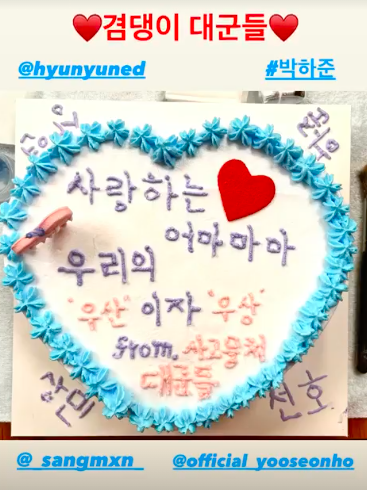 ❤️겸댕이 대군들❤️
@hyunyuned #박하준
사랑하는
어마마마
우리의
"우산" 이자 "우상"
from, 사고뭉치
대군들
상민 선호
@_sangmxn_ @official_yooseonho